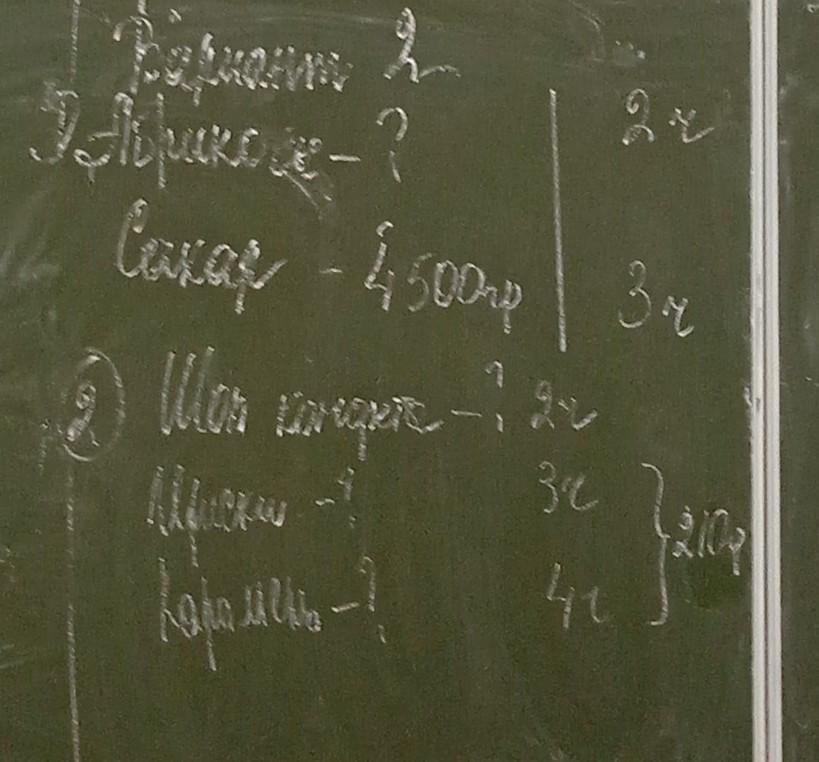 Вариант 2
1) Абрикосы - ? 2 ч
Сахар - 4500 гр 3 ч
2 Шок конфеты - ? 2 ч
Ириски - ? 3 ч
Карамель - ? 4 ч
210 г